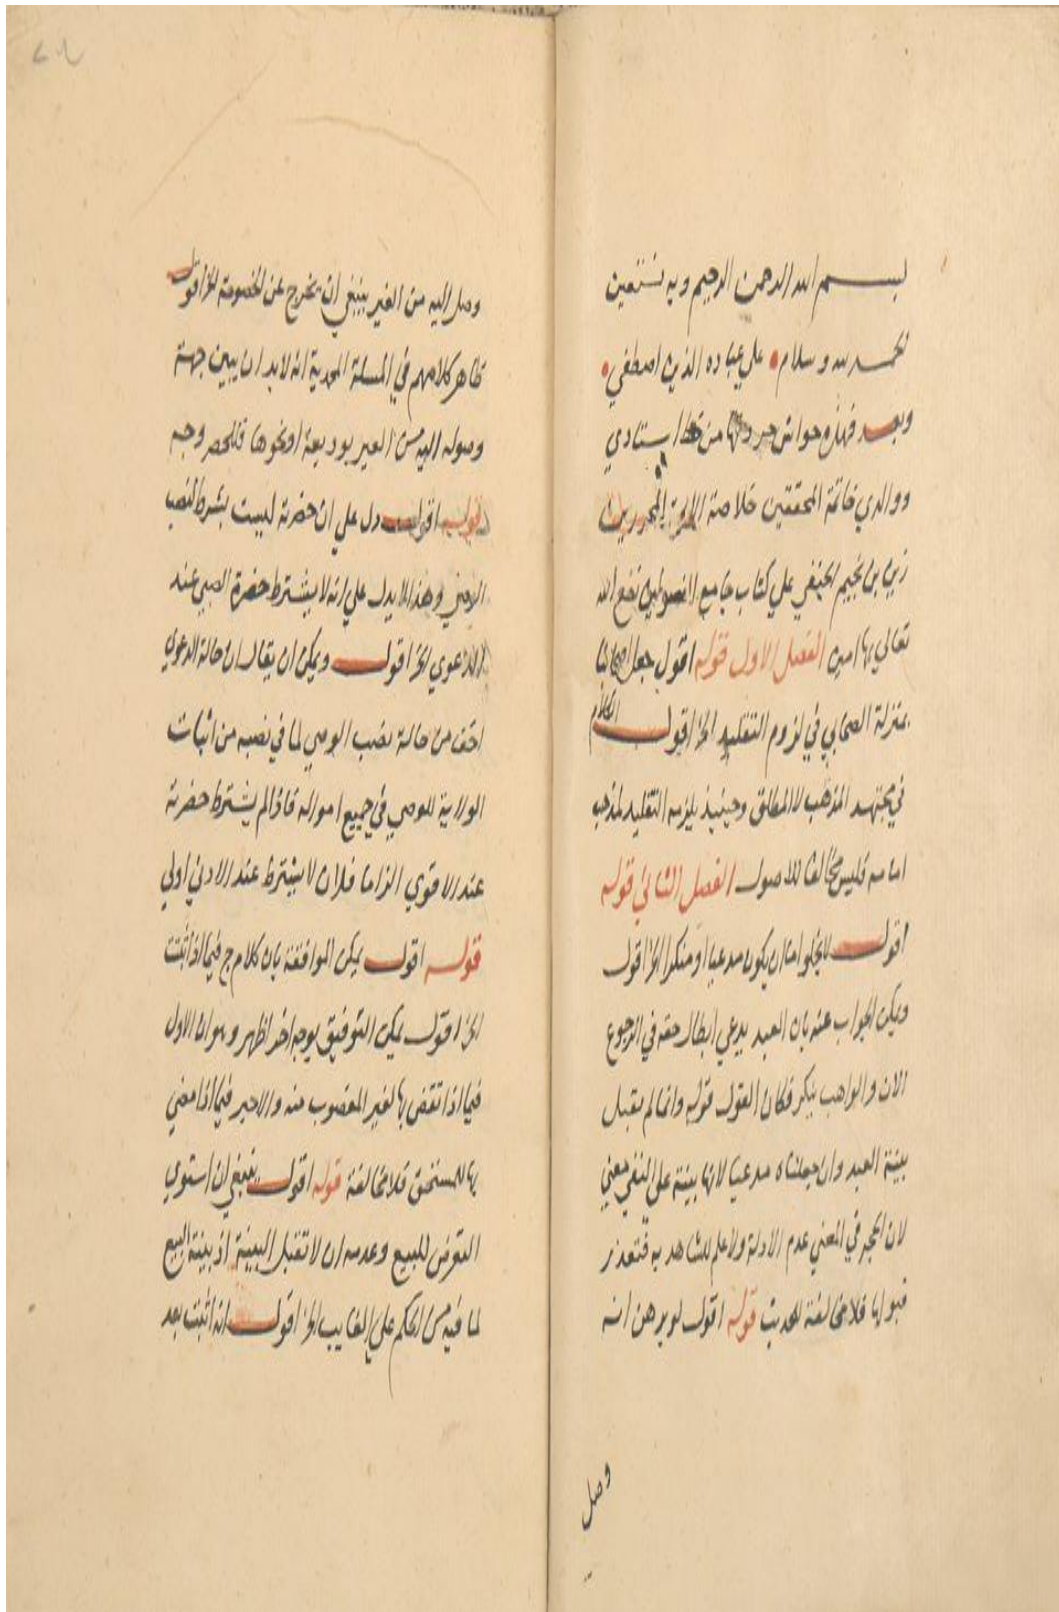 بسم الله الرحمن الرحيم وبه نستعين
الحمد لله وسلام على عباده الذين اصطفي
وبعد فهذه حواش جردتها من خط استادي
ووالدي خاتمة المحققين خلاصة الايمة المحررين
زين بن نجيم الحنفي علي كتاب جامع الفصولين نفع الله
تعالي بها امين الفصل الاول قوله اقول جعل
بمنزلة الصحابي في لزوم التقليد الخ اقول الكلام
في مجتهد المذهب لا المطلق وحينيذ يلزمه التقليد لمذهب
امامه فليس مخالفا للاصول الفصل الثاني قوله
اقول لا يخلوا اما ان يكون مدعيا او منكرا الخ اقول
ويمكن الجواب عنه بان العبد يدعي ابطال حقه في الرجوع
الان والواهب ينكر فكان القول قوله وانما لم يقبل
بينة العبد وان جعلناه مدعيا لانها بينة علي النفي معني
لان الحجر في المعني عدم الادلة ولا علم للشاهد به فتعذر
قبولها فلا مخالفة للحديث قوله اقول لو برهن انه
وصل
وصل اليه من الغير ينبغي ان يخرج عن الخصومة الخ اقول
ظاهر كلامهم في المسلة انه لا بد ان يبين جهة
وصوله اليه من الغير بوديعة او نحوها فانحصر وجه
قوله اقول دل علي ان حضرته ليست بشرط لنصب
الوصي وهذا لا يدل علي انه لا يشترط حضرة الصبي عند
الدعوي الخ اقول ويمكن ان يقال ان حالة الدعوي
اخف من حالة نصب الوصي لما في نصبه من اثبات
الولاية للوصي في جميع امواله فاذا لم يشترط حضرته
عند الاقوي الزاما فلان لا يشترط عند الادني اولي
قوله اقول يمكن الموافقة بان كلام ج فيما اذا ثبتت
الخ اقول يمكن التوفيق بوجه اخر اظهر وهو ان الاول
فيما اذا تقض بها لغير المغصوب منه والاخير فيما اذا قضي
بها للمستحق فلا مخالفة قوله اقول ينبغي ان استوي
التعرض للبيع وعدمه ان لا تقبل البينة اذ بينة البيع
لما فيه من الحكم علي الغايب الخ اقول انه اثبت بعد